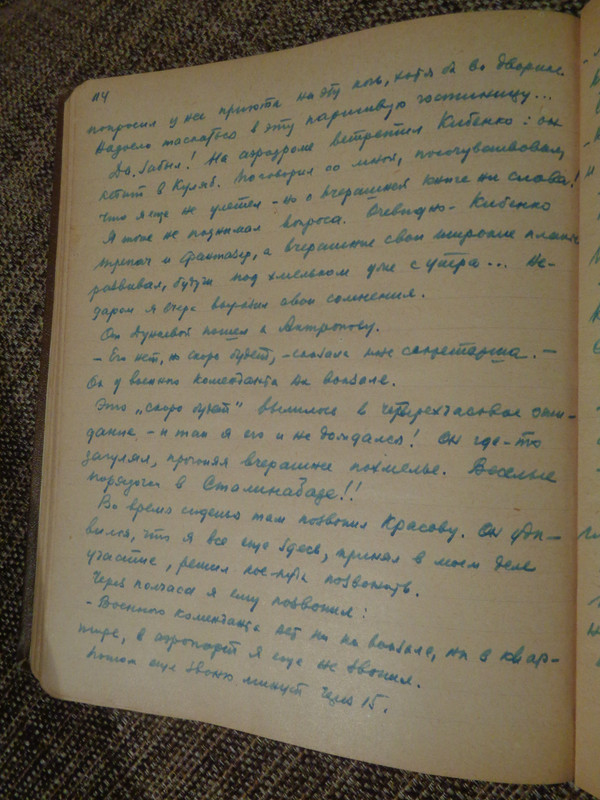 114
попросил у нее приюта на эту ночь, хотя бы во дворике.
Надоело таскаться в эту паршивую гостиницу...
Да, забыл! На аэродроме встретил Кибенко: он
летит в Куляб. Поговорил со мной, посочувствовал,
что я еще не улетел – но о вчерашней книге ни слова!
Я тоже не поднимал вопроса. Очевидно – Кибенко
трепач и фантазер, а вчерашние свои широкие планы
развивал, будучи под хмельком уже с утра... Не-
даром я вчера выразил свои сомнения.
От Дуневой пошел к Антропову.
– Его нет, но скоро будет, – сказала мне секретарша. –
Он у военного коменданта на вокзале.
Это „скоро будет" вылилось в четырехчасовое ожи-
дание – и так я его и не дождался! Он где-то
загулял, прогоняя вчерашнее похмелье. Веселые
порядочки в Сталинабаде!!
Во время сиденья там позвонил Красову. Он уди-
вился, что я все еще здесь, принял в моем деле
участие, решил кое-куда позвонить.
Через полчаса я ему позвонил:
– Военного коменданта нет ни на вокзале, ни в квар-
тире, в аэропорт я еще не звонил.
Потом еще звоню минут через 15.